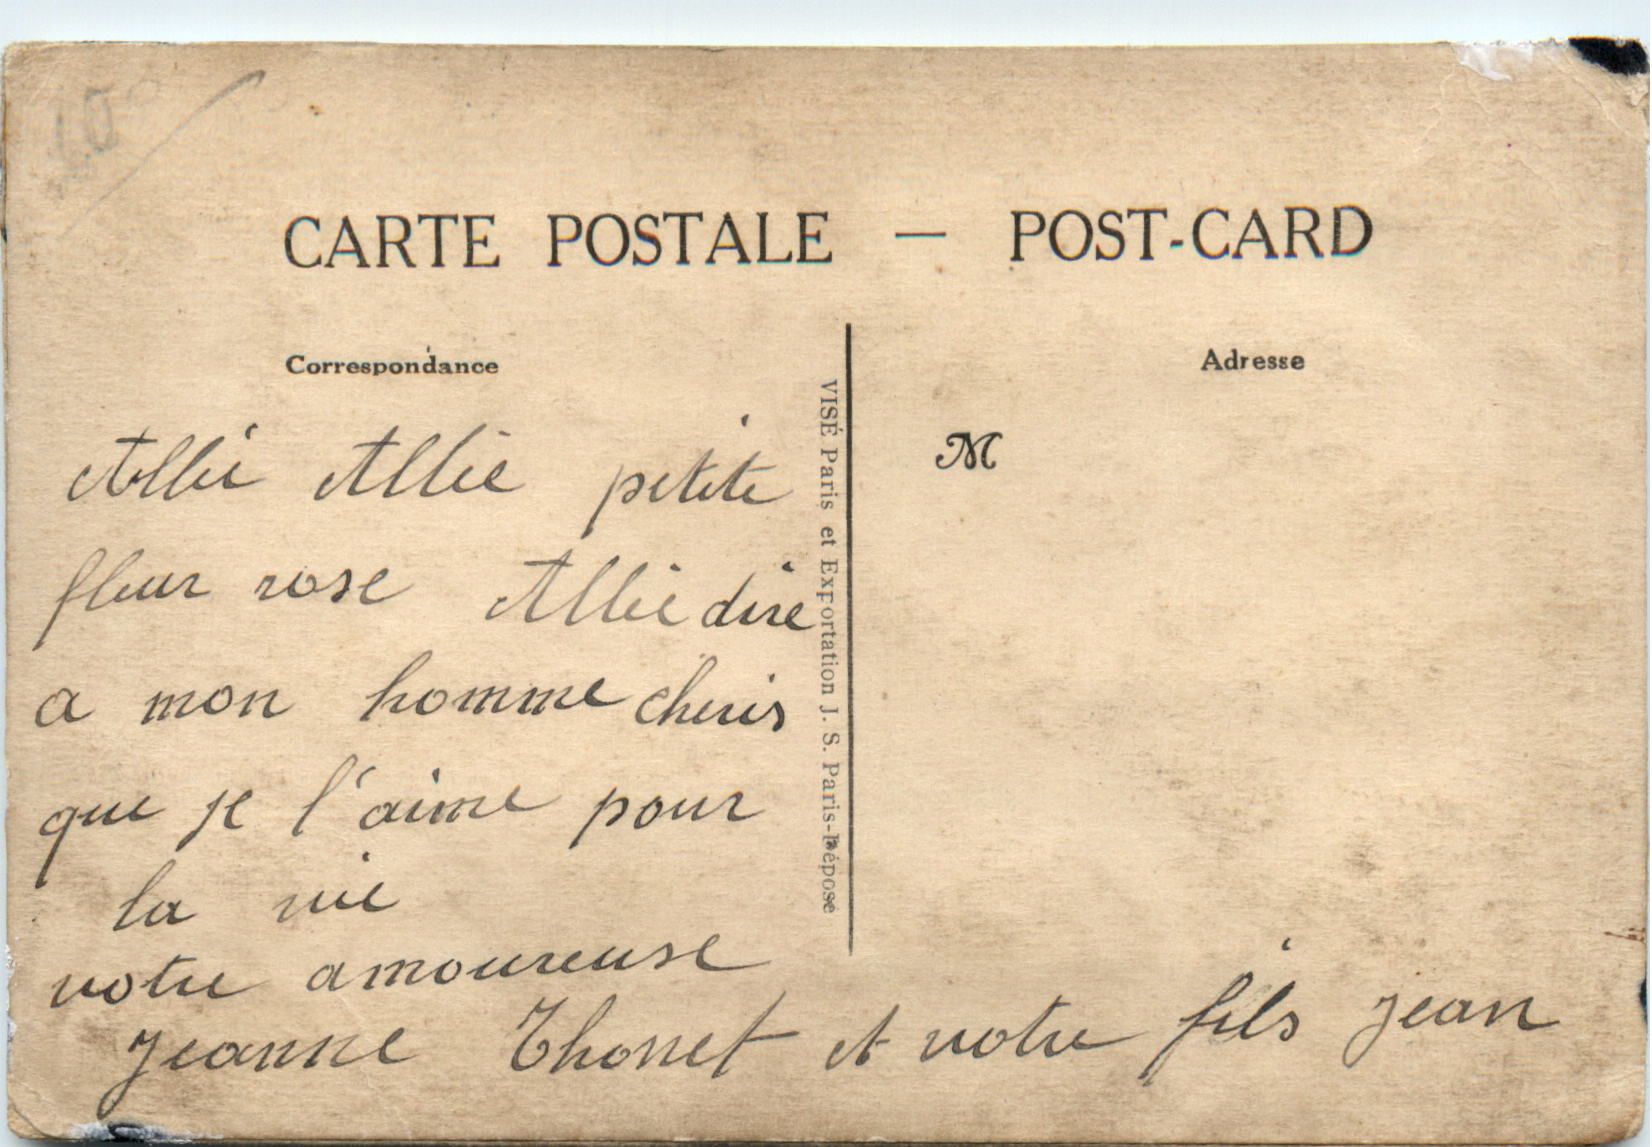 10
CARTE POSTALE — POST-CARD
Correspondance
Adresse
M
VISÉ Paris et Exportation J. S. Paris-Déposé
Allié Allié petite
fleur rose Allié dire
a mon homme cheris
que je l'aime pour
la vie
votre amoureuse
Jeanne Thonet et votre fils Jean